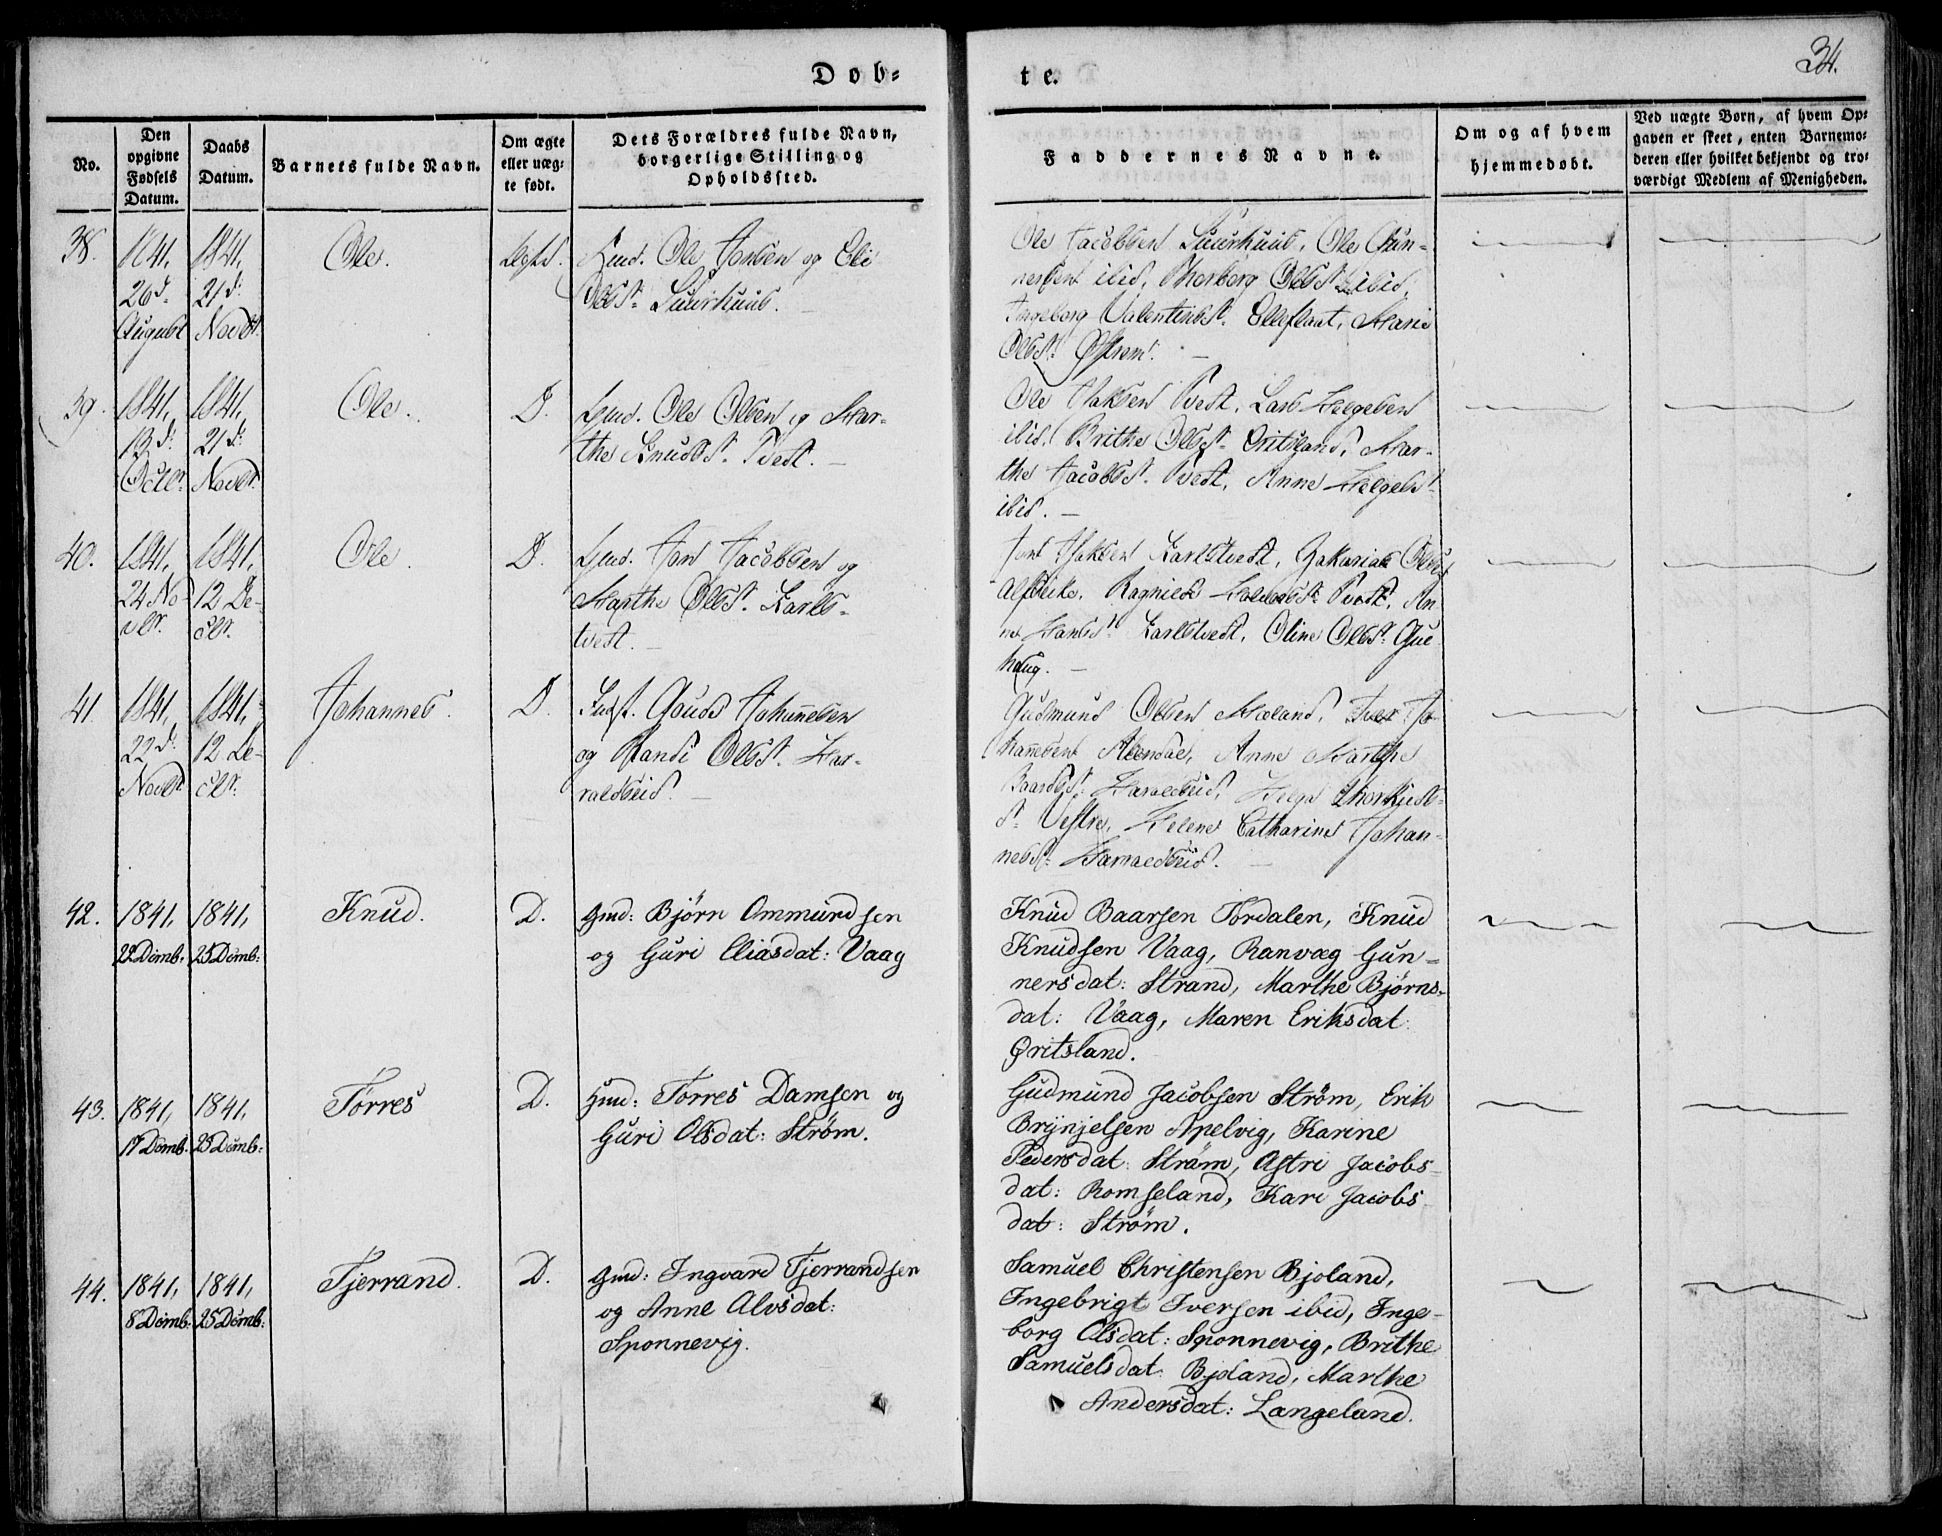 Døb=
te.
34.
No.
Den opgivne Fødsels Datum.
Daabs Datum.
Barnets fulde Navn.
Om ægte eller uæg= te født.
Dets Forældres fulde Navn, borgerlige Stilling og Opholdssted.
Faddernes Navne.
Om og af hvem hjemmedøbt.
Ved uægte Børn, af hvem Op= gaven er skeet, enten Barnemo= deren eller hvilket bekjendt og tro= værdigt Medlem af Menigheden.
38.
1841, 26d. August
1841, 21d. Novbr.
Ole.
Ægte.
Gmd. Ole Jonsen og Eli
Olsd.
Ole Jacobsen Ole Gun=
nersen ibid, Thorborg Olsd. ibid,
Ingeborg Valentinsd. Marie
Olsd. Østrem.
39.
1841, 13d. Octbr.
1841, 21d. Novbr.
Ole.
D.
Gmd. Ole Olsen og Mar=
the Knudsd. Tvedt.
Ole Tvedt, Lars Helgesen
ibid, Brithe Olsd. Øritsland, Mar=
the Jacobsd. Tvedt, Anne Helgesd.
ibid.
40.
1841, 24 No= vbr.
1841, 12 De= cbr.
Ole.
D.
Gmd. Jon Jacobsen og
Marthe Olsd. Karls=
tvedt.
Karlstvedt, Zakarias
Ragnild Tvedt, An=
ne Hansd. Karlstvedt, Oline Olsd.
haug.
41
1841, 22d. Novbr.
1841, 12 De= cbr.
Johannes.
D.
Johannesen
og Randi Olsd. Har=
raldseid.
Gudmund Olsen Iver Jo=
hannesen Anne Marthe
Baardsd. Haraldseid,
Helene Catharine Johan=
nesd. Harraldseid.
42.
1841, 22 Dcmb.
1841, 25 Dcmb:
Knud.
D.
Gmd: Bjørn Ommundsen
og Guri Eliasdat: Vaag
Knud Baarsen Tordalen, Knud
Knudsen Vaag, Ranvæg Gun=
nersdat: Strand, Marthe Bjørns=
dat: Vaag, Maren Eriksdat
Øritsland.
43.
1841, 17 Dcmb.
1841, 25 Dcmb:
Tørres
D.
Gmd: Tørres Damsen og
Guri Olsdat: Strøm.
Gudmund Jacobsen Strøm, Erik
Brynjelsen Apelvig, Karine
Pedersdat: Strøm, Astri Jacobs=
dat: Romseland, Kari Jacobs
dat: Strøm.
44.
1841, 8 Dcmb:
1841, 25 Dcmb:
Tjerrand.
D.
Gmd: Ingvard Tjerrandsen
og Anne Alvsdat:
Sponnevig.
Samuel Christensen Bjoland,
Ingebrigt Iversen ibid, Inge=
borg Olsdat: Sponnevig, Brithe
Samuelsdat: Bjoland, Marthe
Andersdat: Langeland.